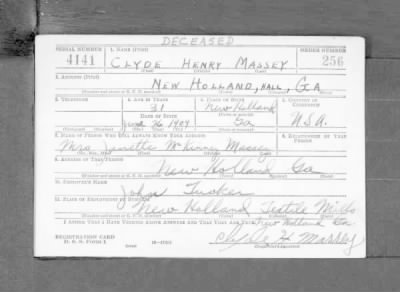 DECEASED
SERIAL NUMBER 1. NAME (Print) ORDER NUMBER
4141 CLYDE HENRY MASSEY 256
(First) (Middle) (Last)
2. ADDRESS (Print)
NEW HOLLAND, HALL, GA
3. TELEPHONE 4. AGE IN YEARS 5. PLACE OF BIRTH 6. COUNTRY OF CITIZENSHIP
31 New Holland
26 1909 Ga U.S.A.
7. NAME OF PERSON WHO WILL ALWAYS KNOW YOUR ADDRESS 8. RELATIONSHIP OF THAT PERSON
Mrs. McKinney Massey
9. ADDRESS OF THAT PERSON
New Holland Ga
10. EMPLOYER'S NAME
John Tucker
11. PLACE OF EMPLOYMENT OR BUSINESS
New Holland Textile Mills
New Holland Ga.
I AFFIRM THAT I HAVE VERIFIED ABOVE ANSWERS AND THAT THEY ARE TRUE.
REGISTRATION CARD
D. S. S. FORM 1 Clyde H Massey